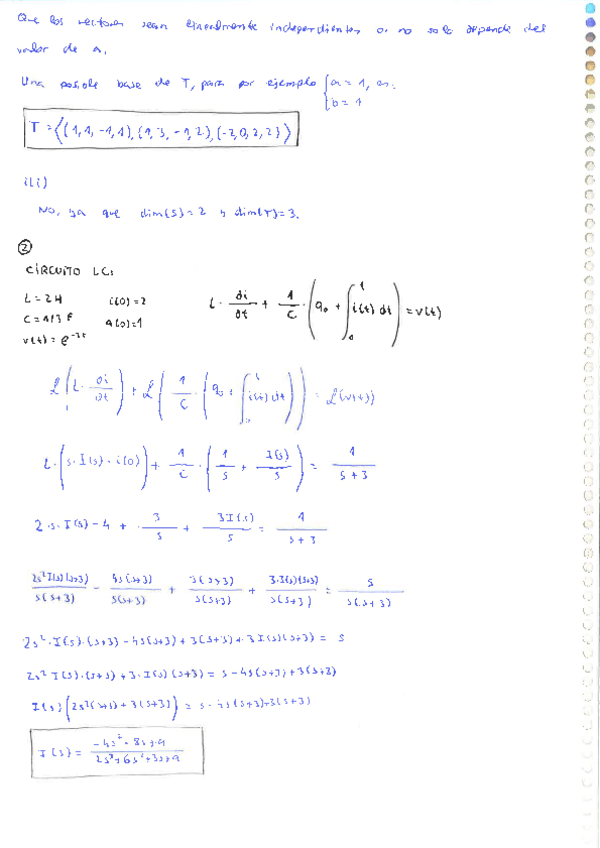 Que los vectores sean linealmente independientes o no solo depende del
valor de a.
Una posible base de T, para por ejemplo { a = 1, es:
b = 1
T = ⟨(1,1,-1,1), (1,3,-1,2), (-2,0,2,2)⟩
iii)
No, ya que dim(S)=2 y dim(T)=3.
②
CIRCUITO LC:
L = 2H i(0) = 2
C = 1/3 F q(0) = 1
v(t) = e^-3t
L · di/dt + 1/C · (q₀ + ∫₀ᵗ i(t) dt) = v(t)
ℒ(L · di/dt) + ℒ(1/C · (q₀ + ∫₀ᵗ i(t) dt)) = ℒ(v(t))
L · (s·I(s) - i(0)) + 1/C · (1/s + I(s)/s) = 1/(s+3)
2·s·I(s) - 4 + 3/s + 3I(s)/s = 1/(s+3)
2s²I(s)(s+3)/s(s+3) - 4s(s+3)/s(s+3) + 3(s+3)/s(s+3) + 3·I(s)(s+3)/s(s+3) = s/s(s+3)
2s²·I(s)·(s+3) - 4s(s+3) + 3(s+3) + 3I(s)(s+3) = s
2s² I(s)·(s+3) + 3·I(s)(s+3) = s - 4s(s+3) + 3(s+3)
I(s) (2s²(s+3) + 3(s+3)) = s - 4s(s+3) + 3(s+3)
I(s) = (-4s² - 8s + 9)/(2s³ + 6s² + 3s + 9)